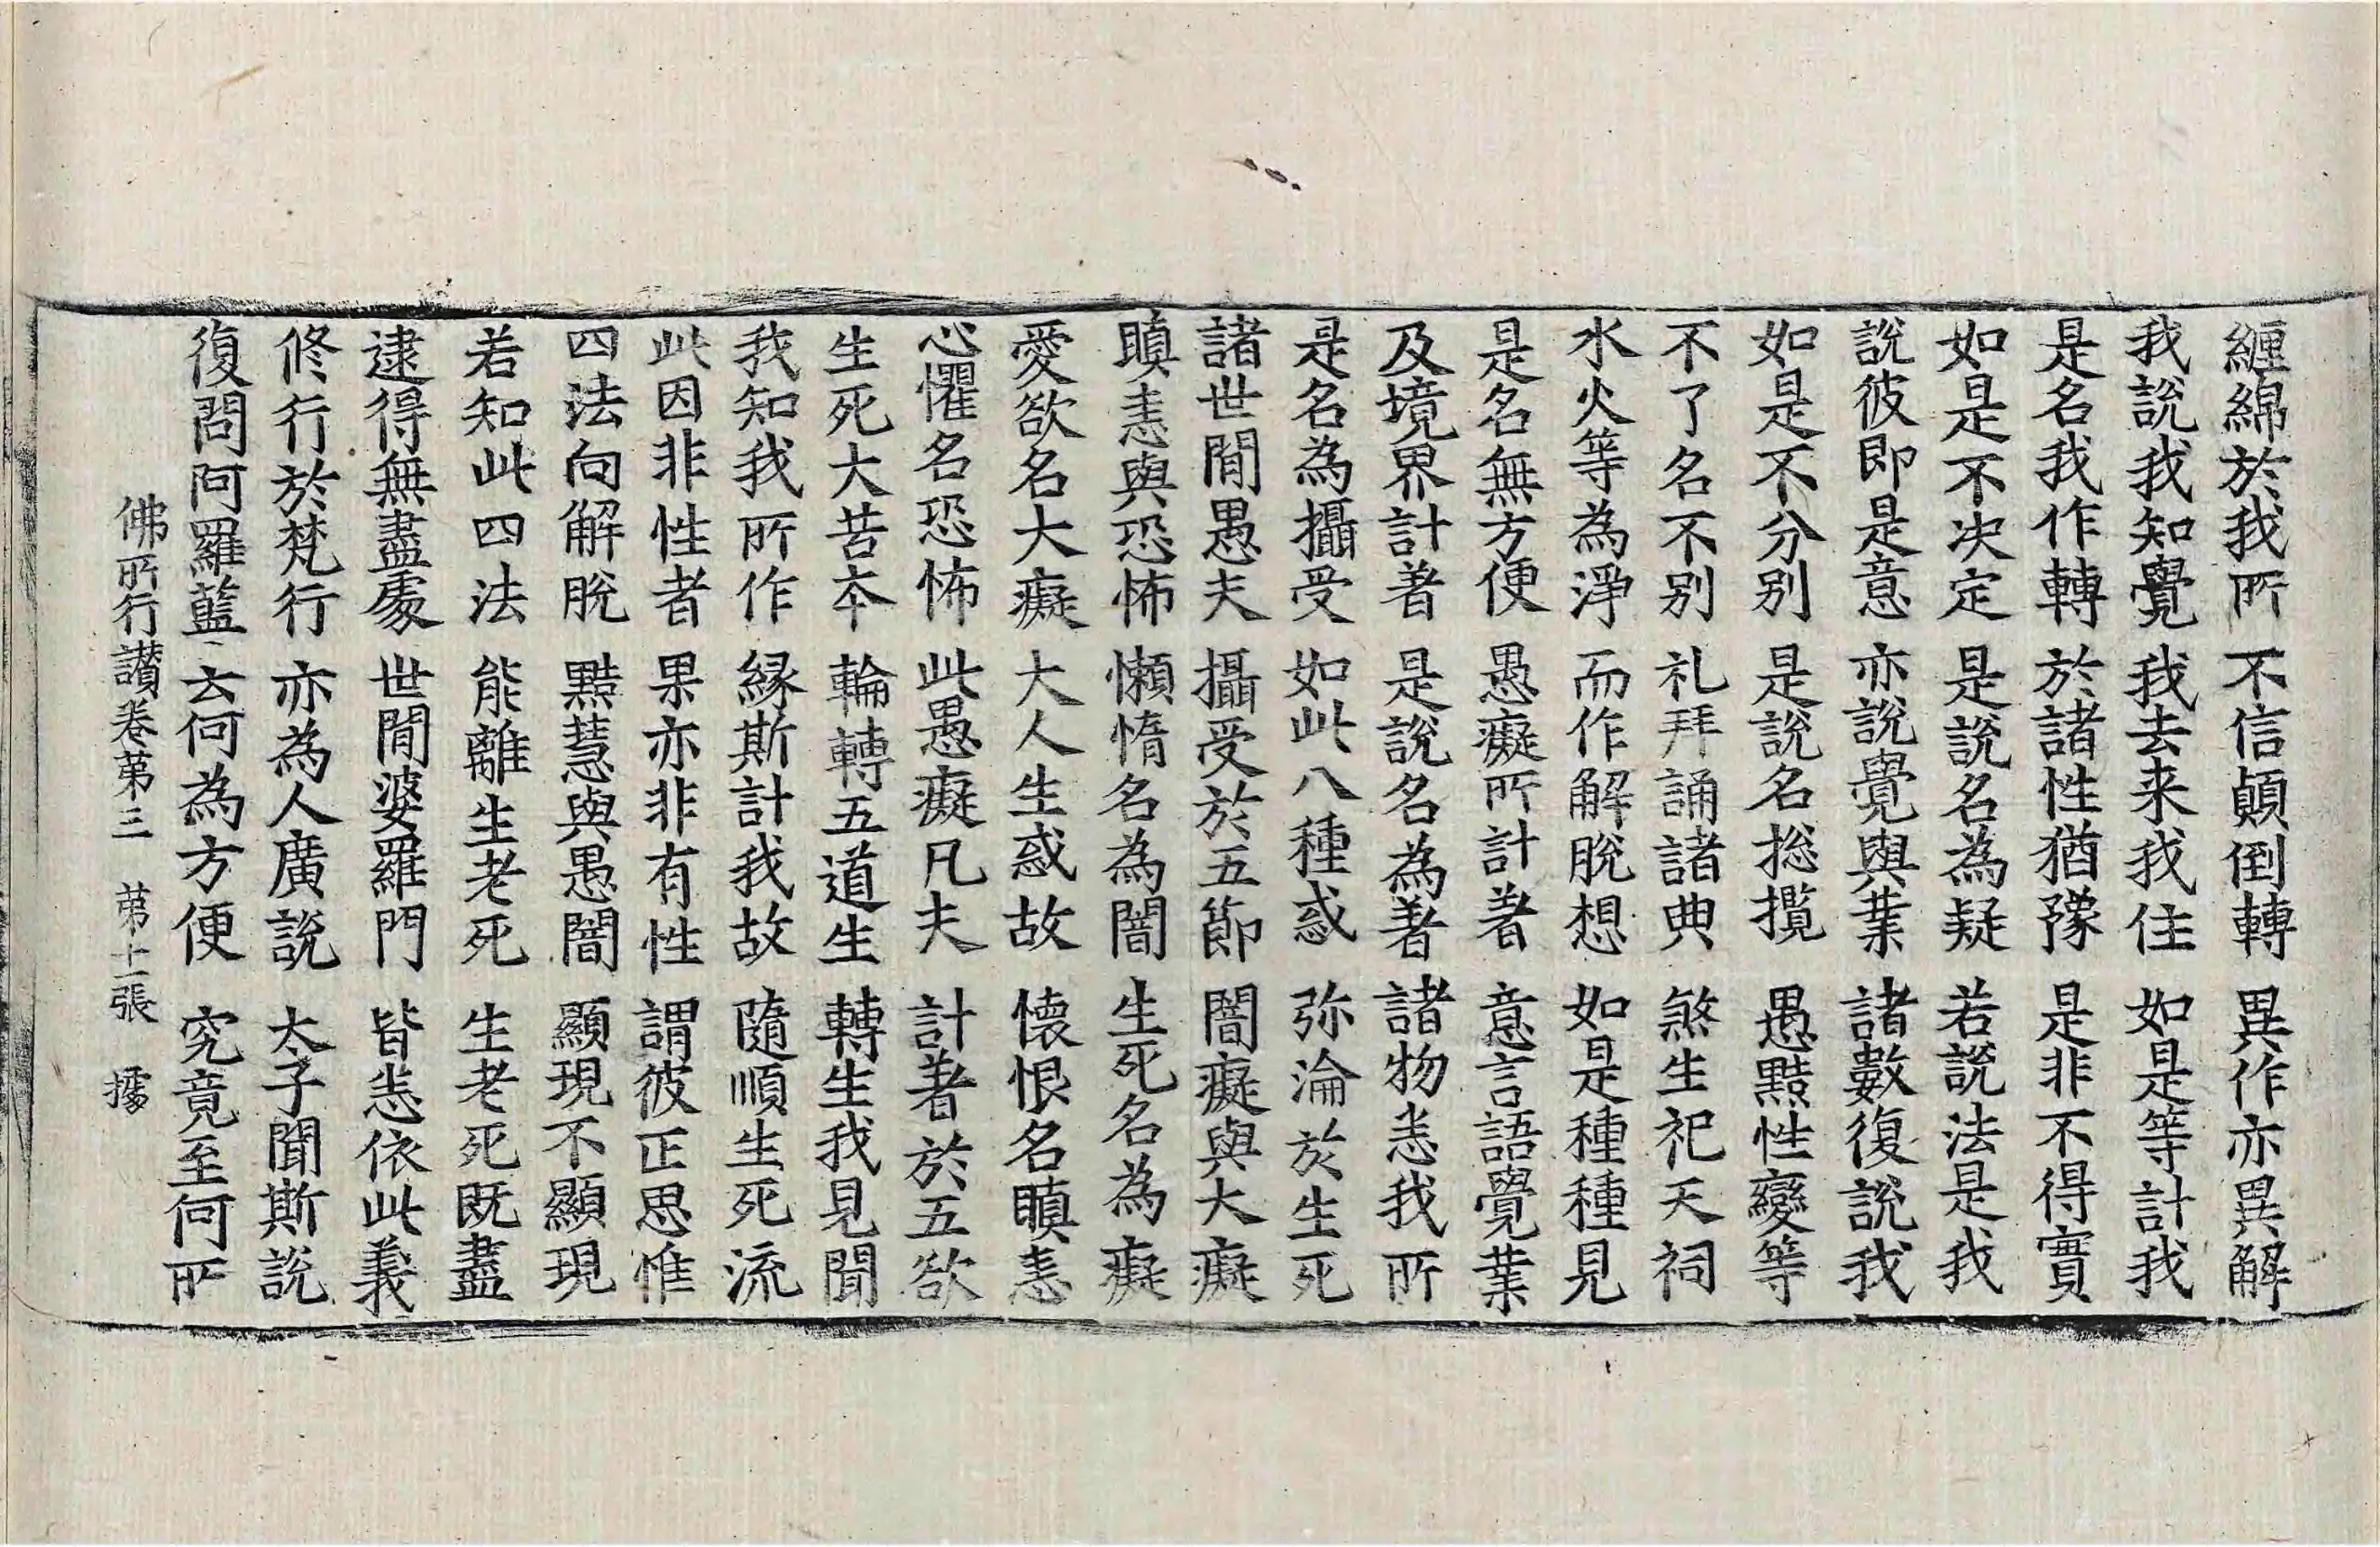 纏綿於我所　不信顛倒轉　異作亦異解
我說我知覺　我去来我住　如是等計我
是名我作轉　於諸性猶豫　是非不得實
如是不决定　是說名為疑　若說法是我
說彼即是意　亦說覺與業　諸數復說我
如是不分别　是說名揔攬　愚黠性變等
不了名不别　礼拜誦諸典　煞生祀天祠
水火等為淨　而作解脫想　如是種種見
是名無方便　愚癡所計著　意言語覺業
及境界計著　是說名為著　諸物恚我所
是名為攝受　如此八種惑　弥淪於生死
諸世閒愚夫　攝受於五節　闇癡與大癡
瞋恚與恐怖　懶惰名為闇　生死名為癡
愛欲名大癡　大人生惑故　懐恨名瞋恚
心懼名恐怖　此愚癡凡夫　計著於五欲
生死大苦夲　輪轉五道生　轉生我見聞
我知我所作　緣斯計我故　隨順生死流
此因非性者　果亦非有性　謂彼正思惟
四法向解脫　黠慧與愚闇　顯現不顯現
若知此四法　能離生老死　生老死既盡
逮得無盡處　世閒婆羅門　皆悉依此義
修行於梵行　亦為人廣說　太子聞斯說
復問阿羅藍　云何為方便　究竟至何所
佛所行讃卷苐三　苐十一張　據